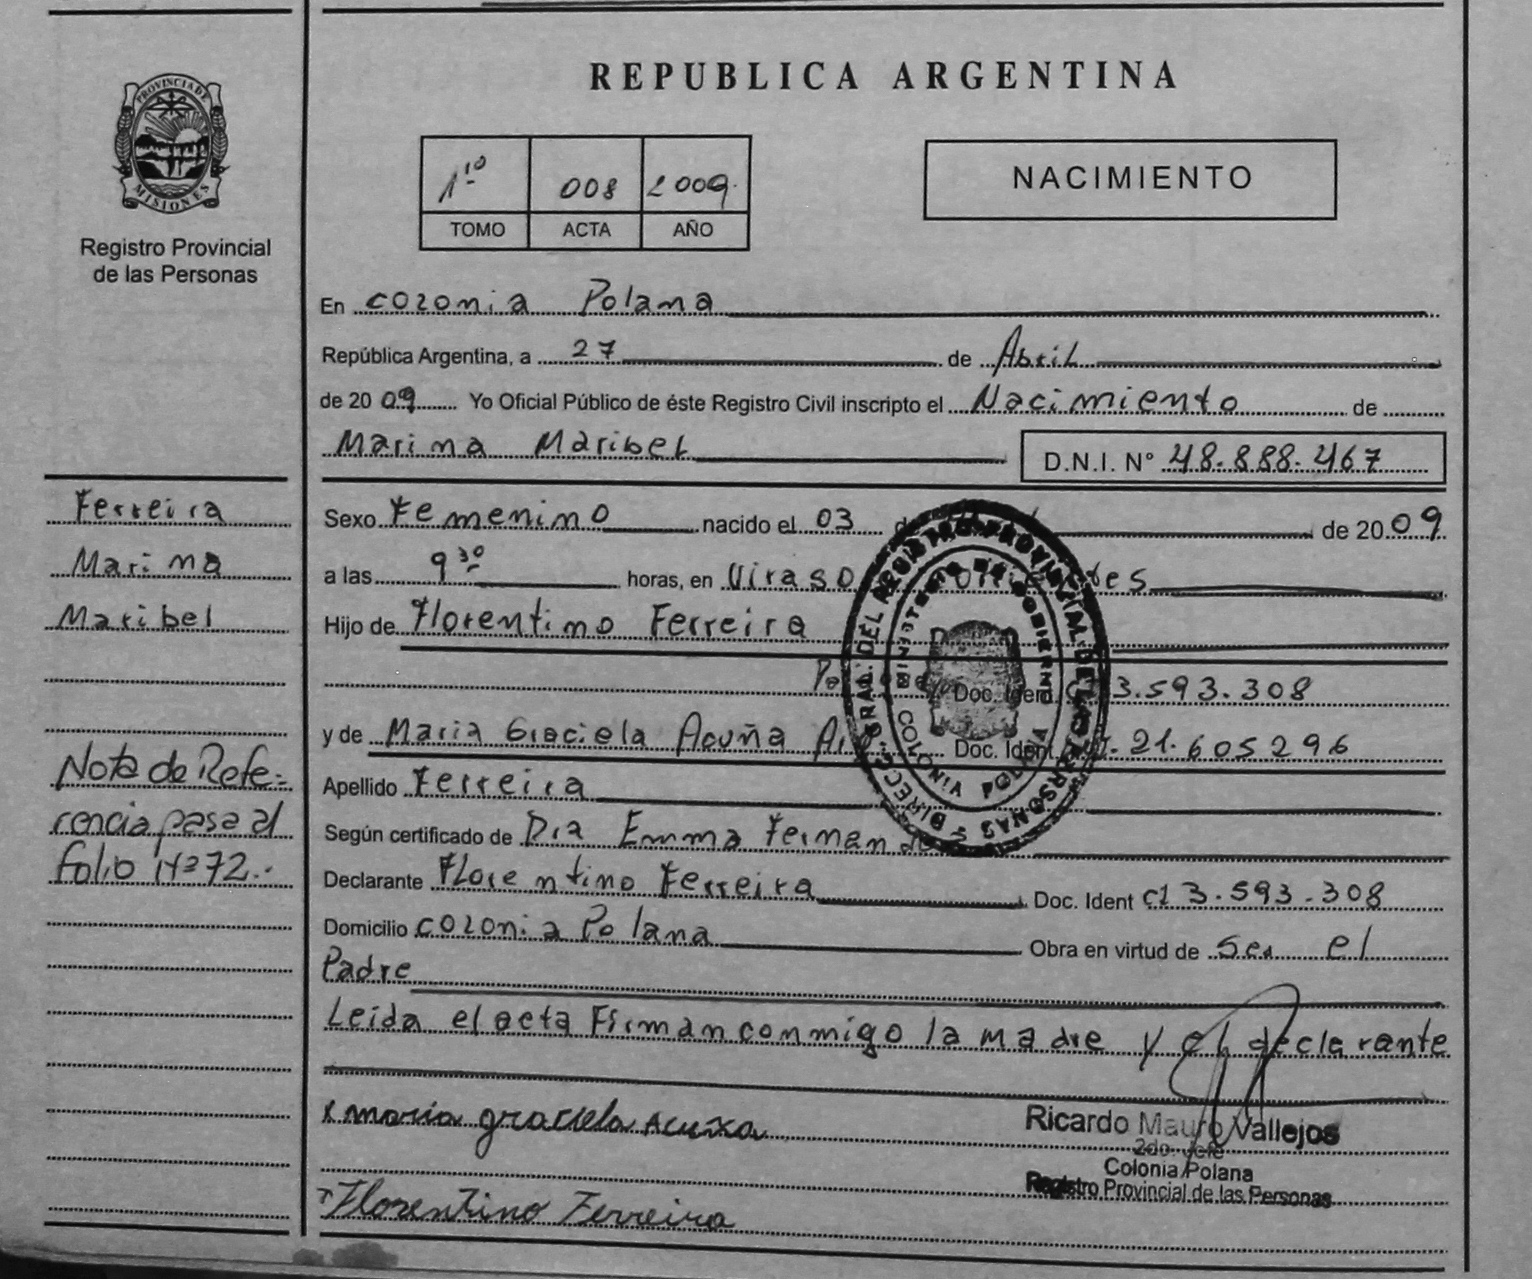 PROVINCIA DE
MISIONES
Registro Provincial
de las Personas
REPUBLICA ARGENTINA
1º 008 2009
TOMO ACTA AÑO
NACIMIENTO
En colonia Polana
República Argentina, a 27 de Abril
de 20 09 Yo Oficial Público de éste Registro Civil inscripto el Nacimiento de
Marina Maribel D.N.I. N° 48.888.467
Ferreira
Marina
Maribel
Nota de Refe-
rencia pasa al
folio Nº 72.
Sexo Femenino nacido el 03 de 20 09
a las 9 30 horas, en Viraso
Hijo de Florentino Ferreira
Doc. Ident. 3.593.308
y de Maria Graciela Acuña Doc. Ident. 21.605296
Apellido Ferreira
Según certificado de Dra Emma Fernandes
Declarante Florentino Ferreira Doc. Ident CI 3.593.308
Domicilio colonia Polana Obra en virtud de Ser el
Padre
Leida el acta Firman conmigo la madre y el declarante
x maria graciela Acuxa
Florentino Ferreira
Ricardo Mauro Vallejos
2do. Jefe
Colonia Polana
Registro Provincial de las Personas
DIREC. GRAL. DEL REGISTRO PROVINCIAL DE LAS PERSONAS
MINISTERIO DE GOBIERNO
COLONIA POLANA